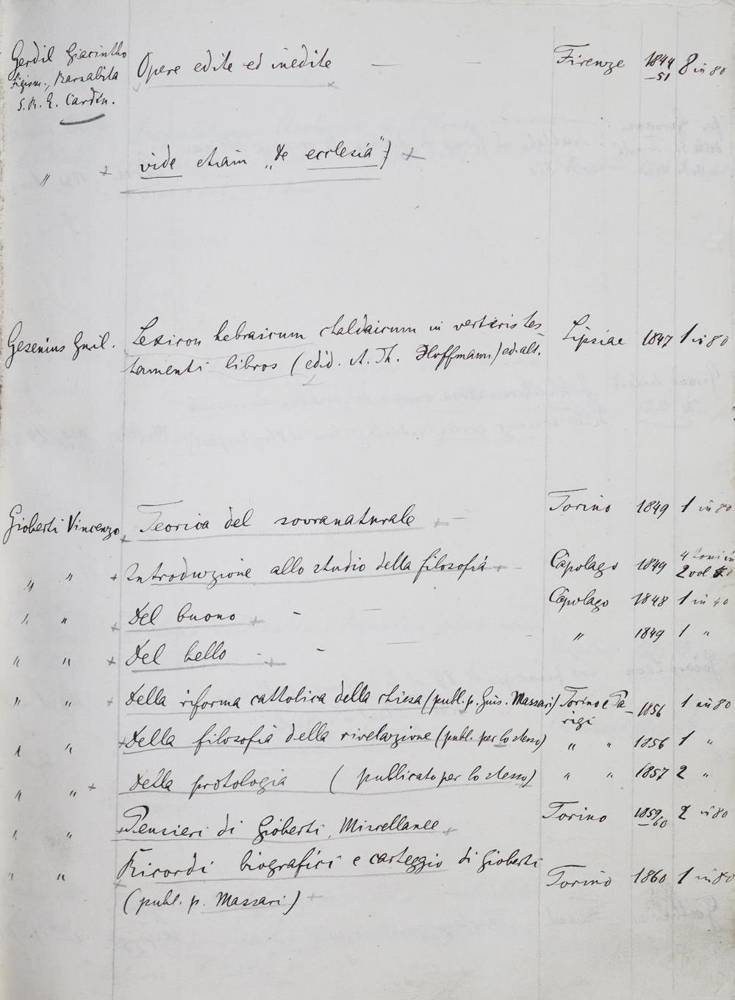 Gerdil Giacintho Opere edite ed inedite — — Firenze 1844 8 in 8o
Sigism., Barnabita -51
S.R.E. Cardin.
" + vide etiam „de ecclesia") +
Gesenius Guil. Lexicon hebraicum chaldaicum in veteris tes- Lipsiae 1847 1 in 8o
tamenti libros (edid. A. Th. Hoffmann) ed. alt.
Gioberti Vincenzo + Teorica del sovranaturale + — Torino 1849 1 in 8o
" " + Introduzione allo studio della filosofia + — Capolago 1849 4 tomi in
2 vol 8o
" " + Del buono + - — Capolago 1848 1 in 4o
" " + Del bello - + - — " 1849 1 "
" " + Della riforma cattolica della chiesa (publ. p. Gius. Massari) Torino e Pa- 1856 1 in 8o
rigi
" " + Della filosofia della rivelazione (publ. per lo stesso) " " 1856 1 "
" " + Della protologia (publicato per lo stesso) " " 1857 2 "
" " + Pensieri di Gioberti, Miscellanee + Torino 1859/60 2 in 8o
" " Ricordi biografici e carteggio di Gioberti Torino 1860 1 in 8o
+ (publ. p. Massari) +